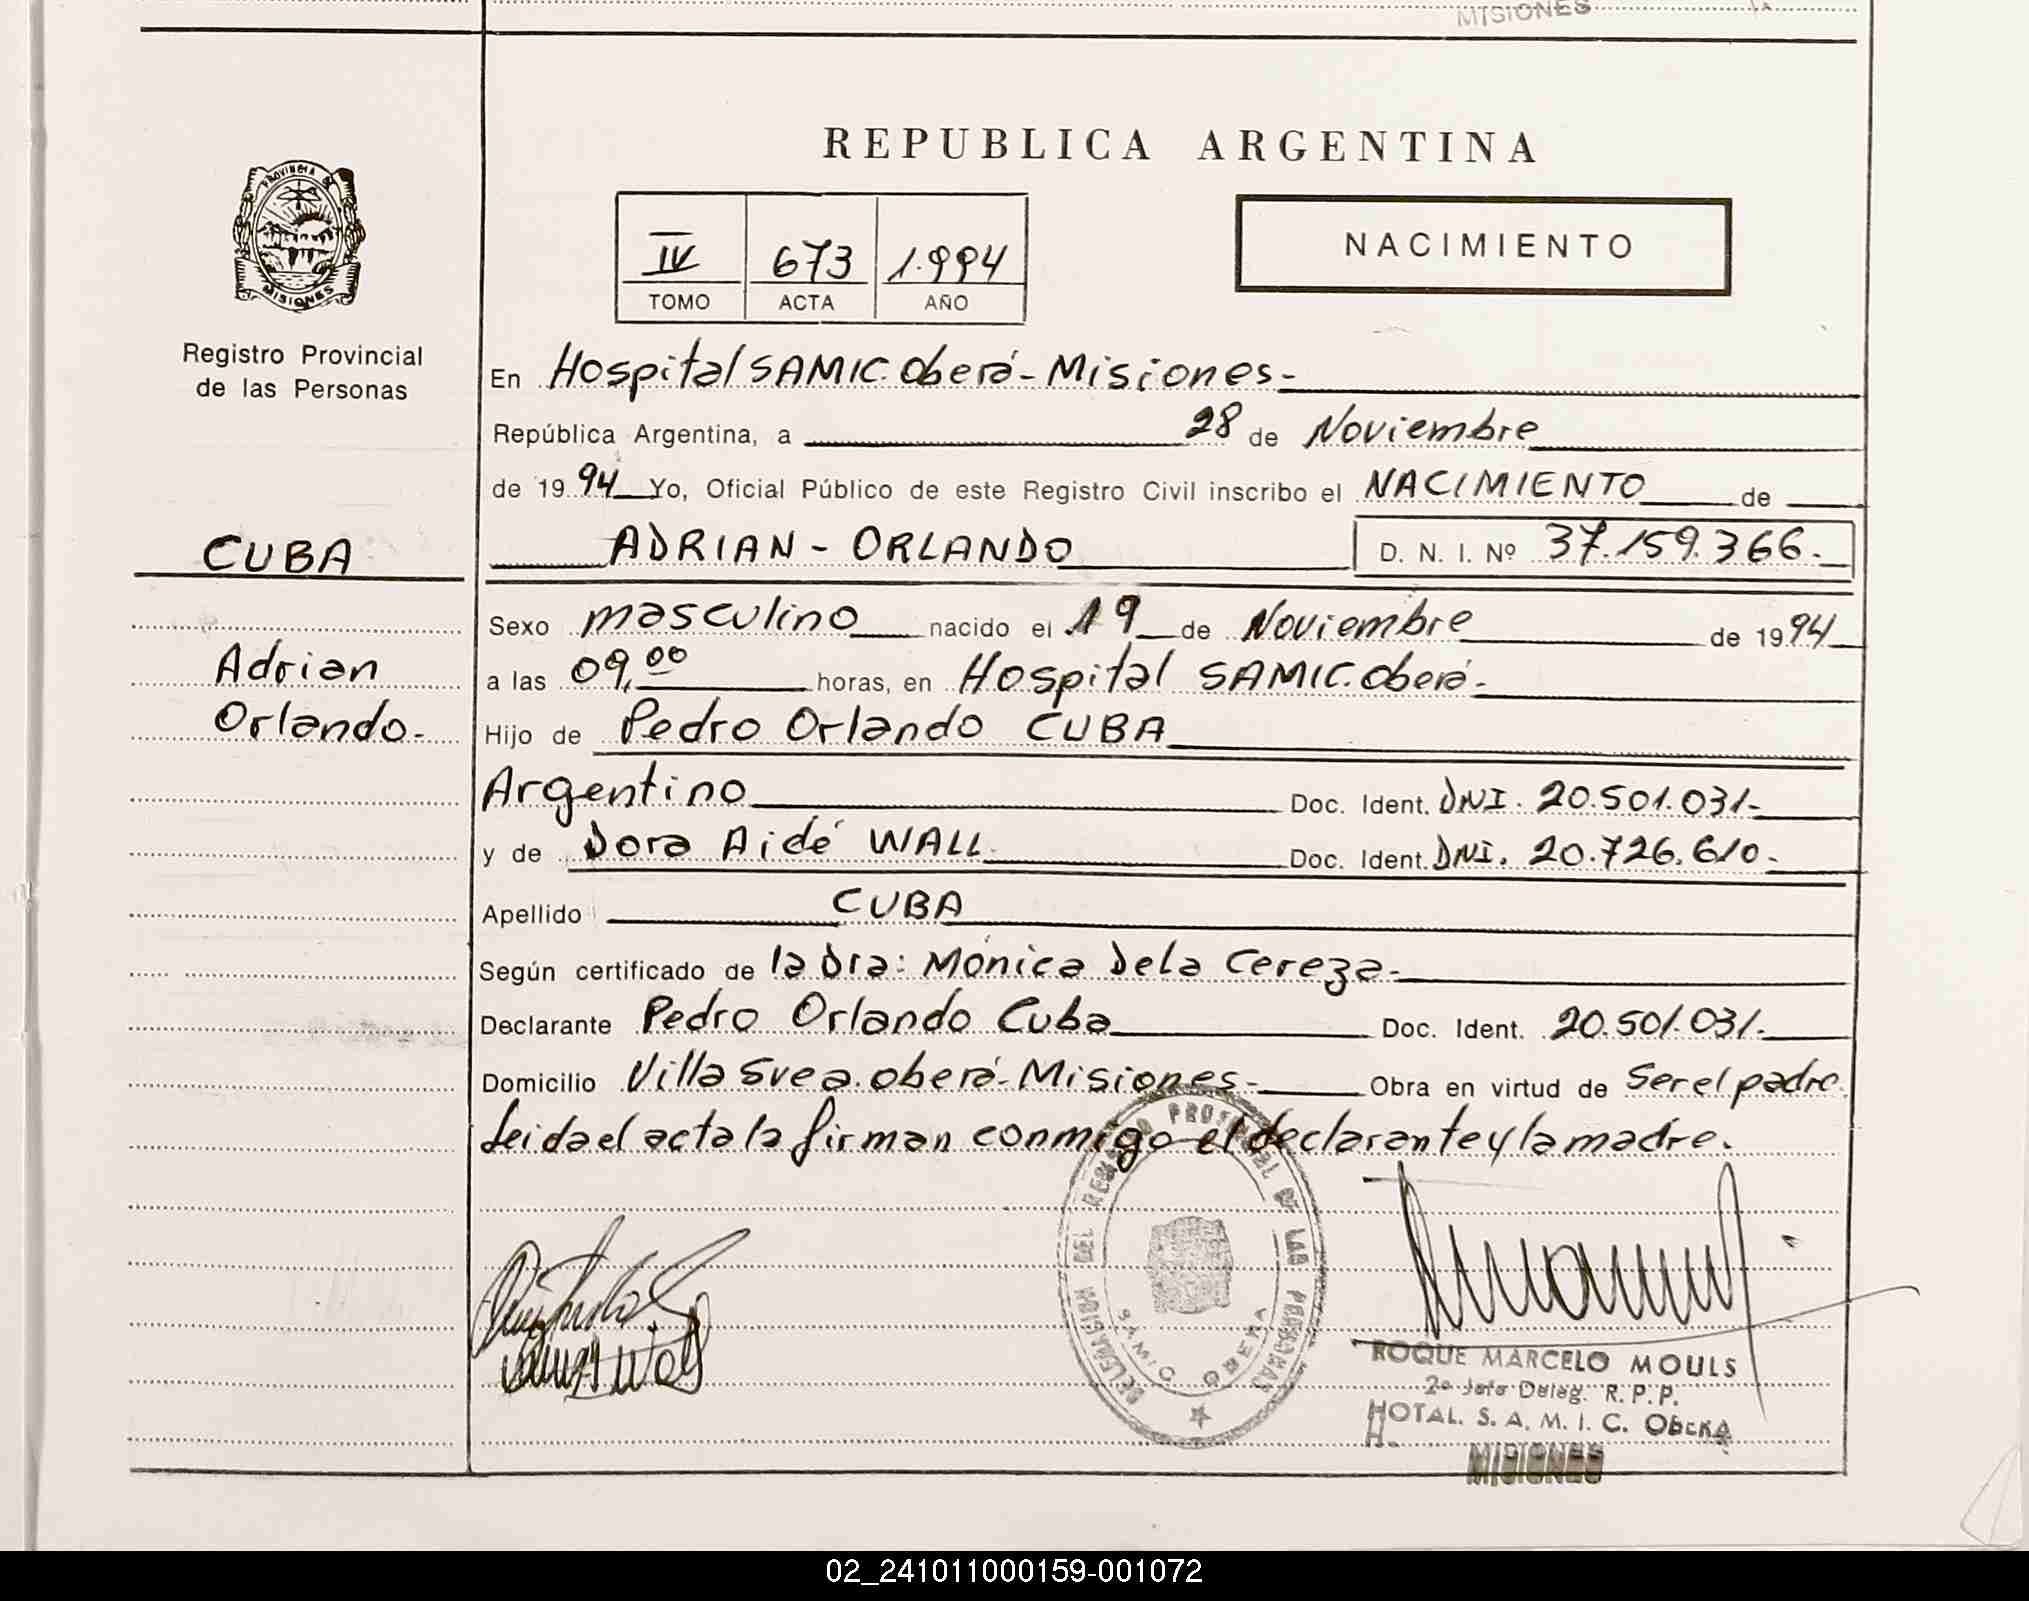 MISIONES
REPUBLICA ARGENTINA
PROVINCIA DE
MISIONES
Registro Provincial
de las Personas
IV 673 1.994
TOMO ACTA AÑO
NACIMIENTO
En Hospital SAMIC. Oberá - Misiones -
República Argentina, a 28 de Noviembre
de 1994 Yo, Oficial Público de este Registro Civil inscribo el NACIMIENTO de
CUBA
ADRIAN - ORLANDO D. N. I. Nº 37.159.366.
Sexo masculino nacido el 19 de Noviembre de 1994
Adrian
a las 09,00 horas, en Hospital SAMIC. Oberá -
Orlando.-
Hijo de Pedro Orlando CUBA
Argentino Doc. Ident. DNI. 20.501.031-
y de Dora Aidé WALL Doc. Ident. DNI. 20.726.610-
Apellido CUBA
Según certificado de la Dra: Mónica Dela Cereza -
Declarante Pedro Orlando Cuba Doc. Ident. 20.501.031.
Domicilio Villa Svea. Oberá - Misiones - Obra en virtud de Ser el padre.
Leida el acta la firman conmigo el declarante y la madre.
DELEGACION DEL REGISTRO PROVINCIAL DE LAS PERSONAS
SAMIC OBERA
ROQUE MARCELO MOULS
2º Jefe Deleg. R. P. P.
HOTAL. S. A. M. I. C. OberA
MISIONES
02_241011000159-001072